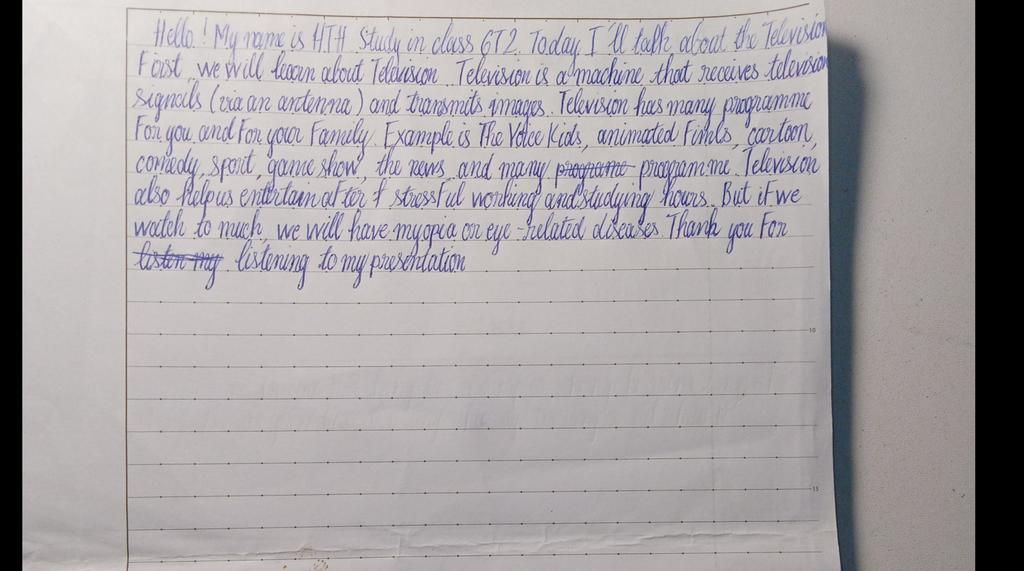 Hello! My name is HTH. Study in class 6T2. Today I'll talk about the Television
First, we will learn about Television. Television is a machine that receives television
signails (via an antenna) and transmits images. Television has many programme
For you and For your Family. Example is The Voice Kids, animated Fimls, cartoon,
comedy, sport, game show, the news and many programe programme. Television
also helpus entertain after f stressful working and studying hours. But if we
watch to much, we will have myopia or eye-related diseases Thank you For
listen my listening to my presentation
10
15